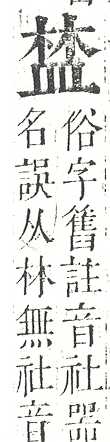 俗字舊註音社器
名誤从林無社音